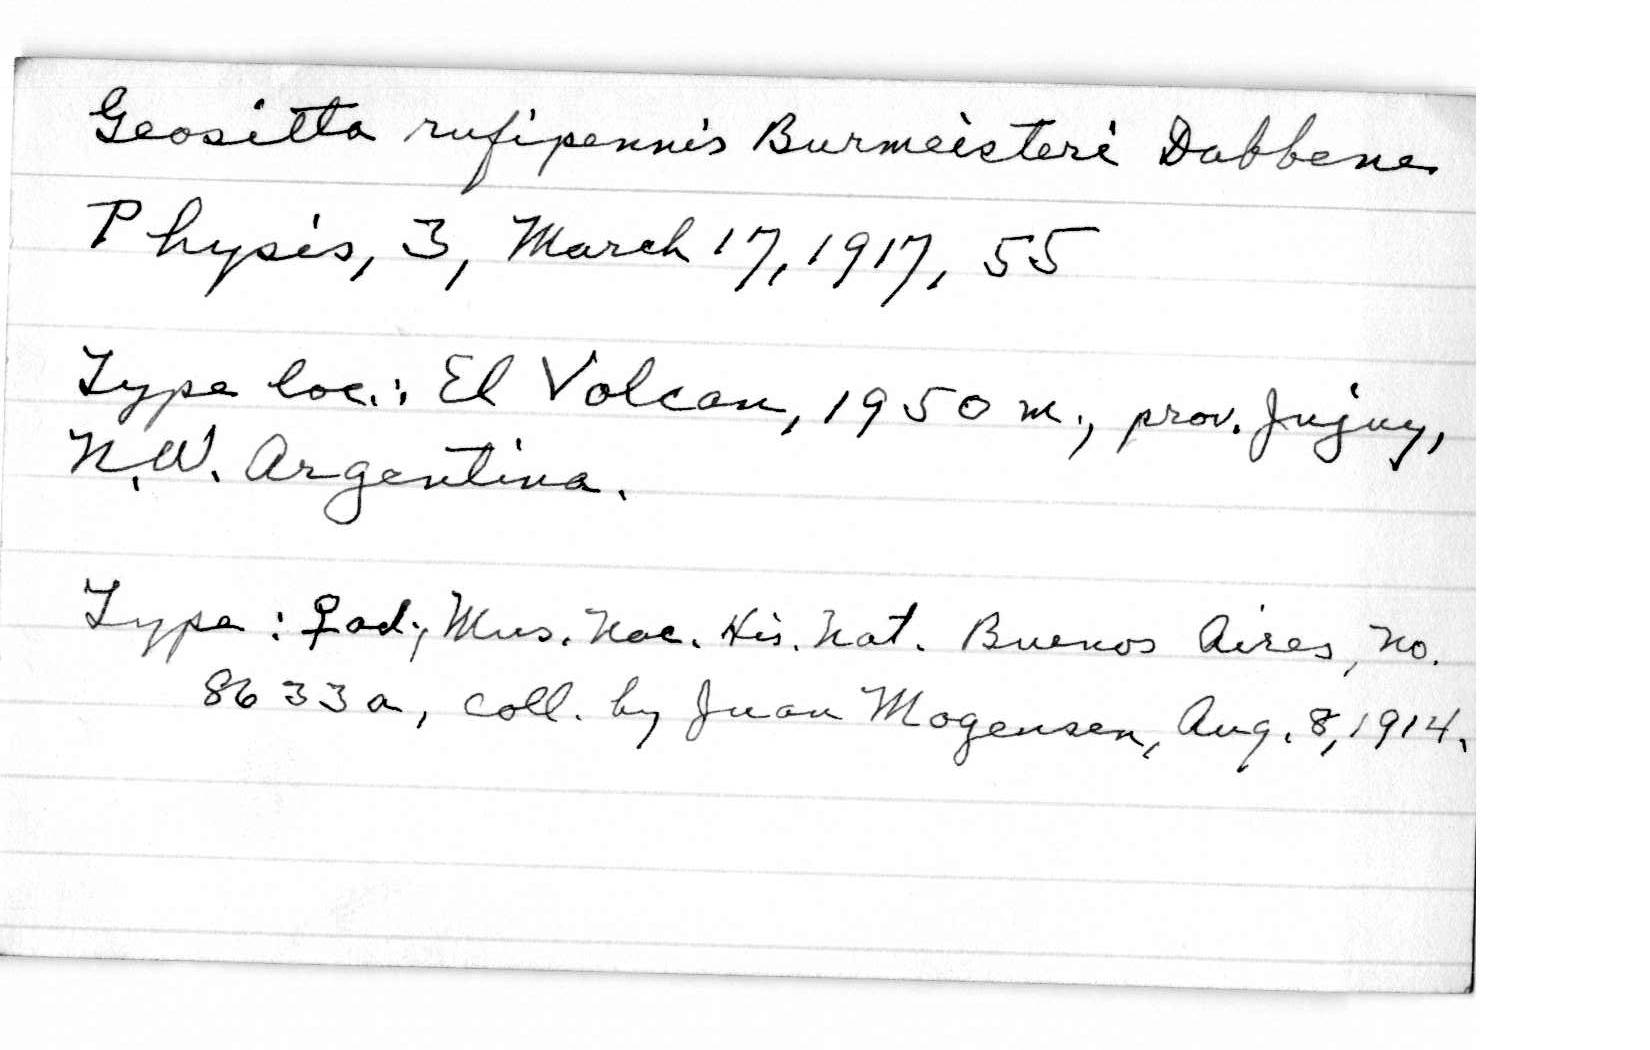 Geositta rufipennis Burmeisteri Dabbene
Physis, 3, March 17, 1917, 55
Type loc.: El Volcan, 1950 m., prov. Jujuy,
N.W. Argentina.
Type: ♀ ad., Mus. Nac. His. Nat. Buenos Aires, No.
8633a, coll. by Juan Mogensen, Aug. 8, 1914.